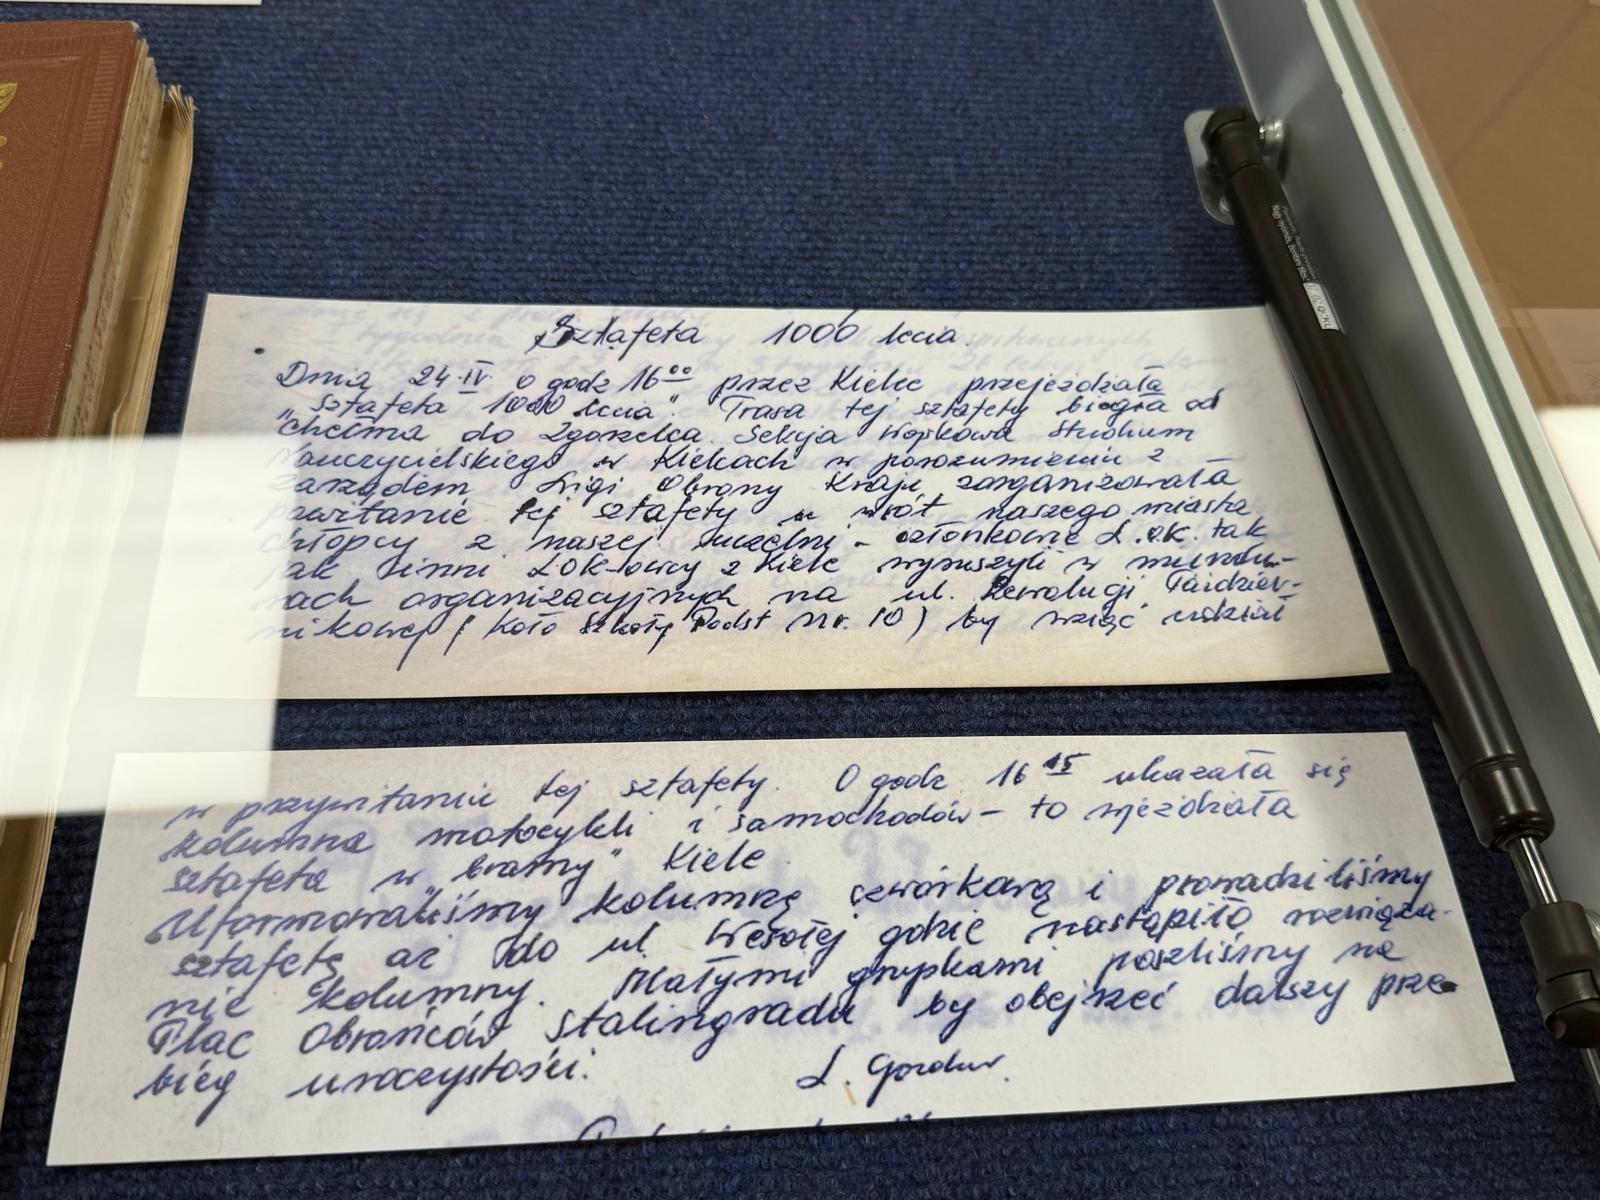 Sztafeta 1000 lecia.
Dnia 24.IV. o godz 16⁰⁰ przez Kielce przejeżdżała
"Sztafeta 1000 lecia". Trasa tej sztafety biegła od
Chełma do Zgorzelca. Sekcja Wojskowa Studium
Nauczycielskiego w Kielcach w porozumieniu z
zarządem Ligi Obrony Kraju zorganizowała
powitanie tej sztafety u wrót naszego miasta
chłopcy z naszej uczelni - członkowie L.O.K. tak
jak inni LOK-owcy z Kielc wyruszyli w mundu-
rach organizacyjnych na ul. Rewolucji Paździer-
nikowej (koło Szkoły Podst Nr. 10) by wziąć udział
w przywitaniu tej sztafety. O godz 16 ¹⁵ ukazała się
kolumna motocykli i samochodów - to wjeżdżała
sztafeta w "bramy" Kielc.
Uformowaliśmy kolumnę czwórkową i prowadziliśmy
sztafetę aż do ul. Wesołej gdzie nastąpiło rozwiąza-
nie kolumny. Małymi grupkami poszliśmy na
Plac Obrońców Stalingradu by obejrzeć dalszy prze-
bieg uroczystości.